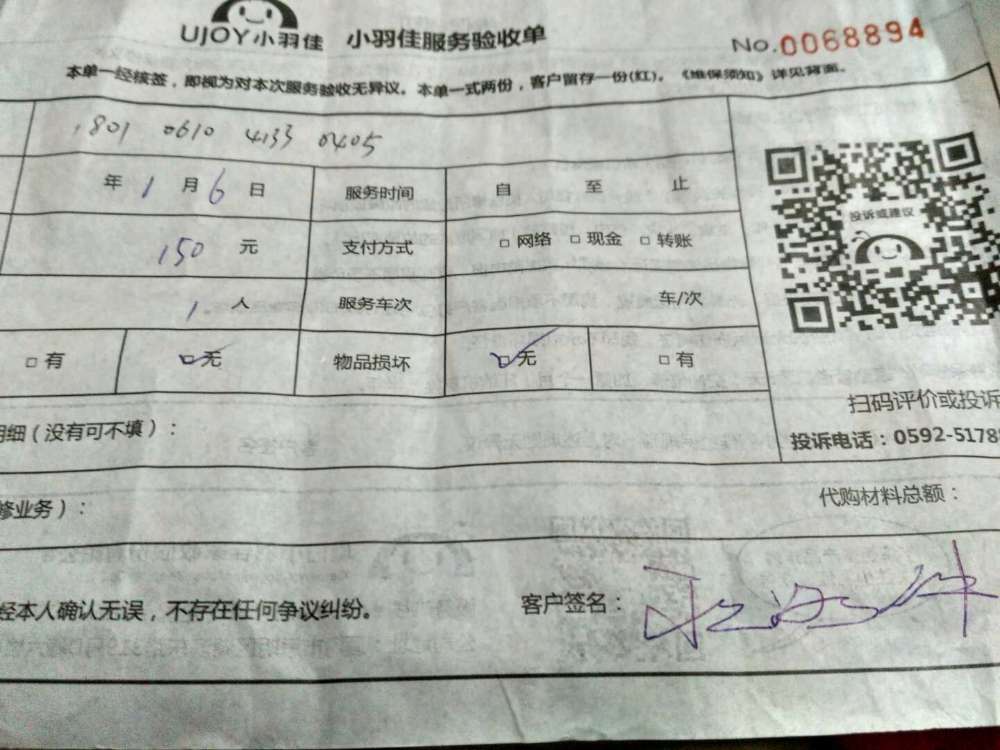 UJOY小羽佳 小羽佳服务验收单 No.0068894
本单一经核签，即视为对本次服务验收无异议。本单一式两份，客户留存一份(红)。《维保须知》详见背面。
1801 0610 4133 0405
年1月6日 服务时间 自 至 止
150 元 支付方式 □网络 □现金 □转账
1 人 服务车次 车/次
投诉或建议
□有 □无 物品损坏 □无 □有
扫码评价或投诉
细（没有可不填）：
投诉电话：0592-5178
修业务）：
代购材料总额：
经本人确认无误，不存在任何争议纠纷。 客户签名：